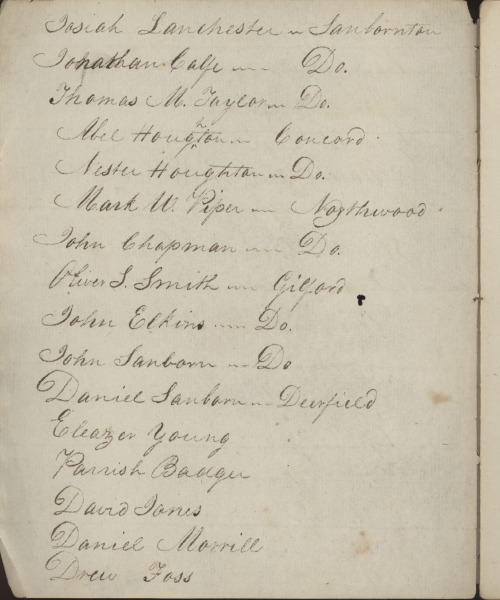 Josiah Lanchester " Sanbornton
Jonathan Calfe " " Do.
Thomas M. Taylor " Do.
Abel Houghton " Concord.
Nester Houghton " Do.
Mark W. Piper " Northwood.
John Chapman " Do.
Oliver S. Smith " Gilford
John Elkins " Do.
John Sanborn " Do
Daniel Sanborn " Deerfield
Eleazer Young
Parrish Badger
David Jones
Daniel Morrill
Drew Foss